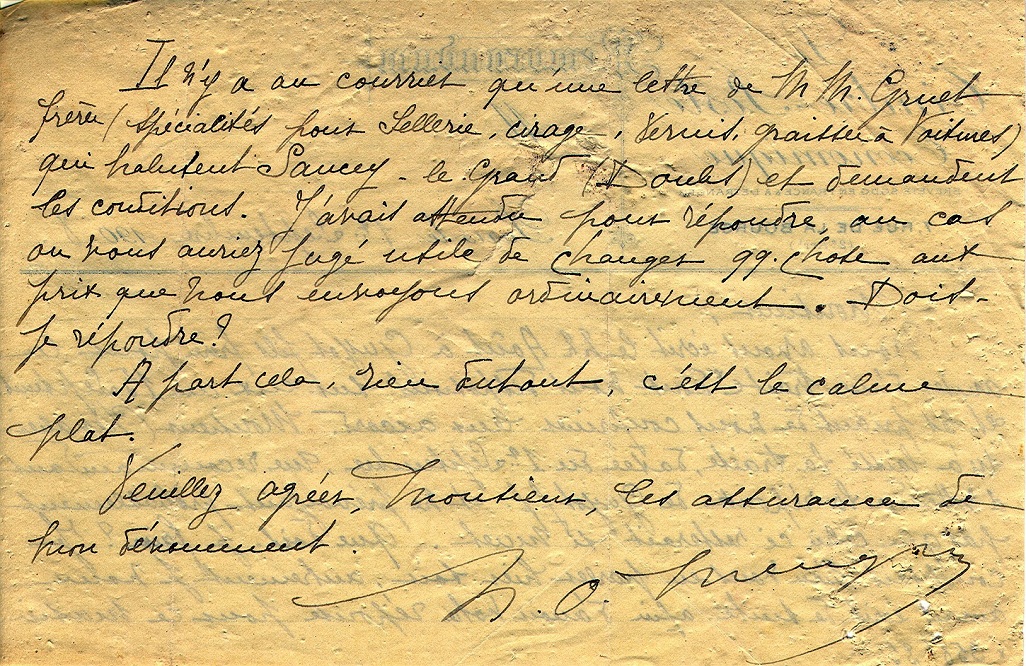 Il n'y a au courrier qu'une lettre de M M. Gruet
frères (spécialités pour Sellerie, cirage, vernis, graisse à voitures)
qui habitent Sancey-le-Grand (Doubs) et demandent
les conditions. J'avais attendu pour répondre au cas
ou vous auriez jugé utile de changer qq. chose aux
prix que nous envoyons ordinairement. Dois-
je répondre?
A part cela, rien autant, c'est le calme
plat.
Veuillez agréer, Monsieur, les assurance de
mon dévouement.